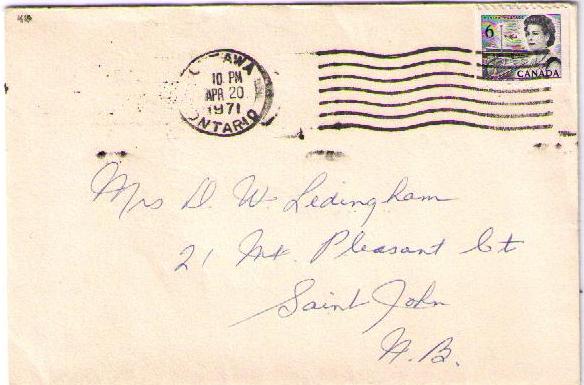 OTTAWA
10 PM
APR 20
1971
ONTARIO
6
CANADA
Mrs D. W. Ledingham
21 Mt. Pleasant Ct
Saint John
N.B.